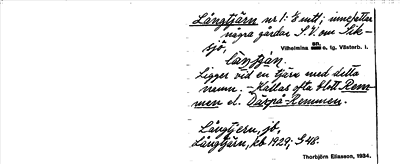 Långtjärn nr 1: 8 mtl; innefattar
några gårdar S.V. om Sik-
sjö, Vilhelmina sn. o. tg. Västerb. l.
Ligger vid en tjärn med detta
namn. – Kallas ofta blott Rem-
men el. Därpå-Remmen.
Långtjern, jb,
Långtjärn, kb 1929; S 48.
Thorbjörn Eliasson, 1934.